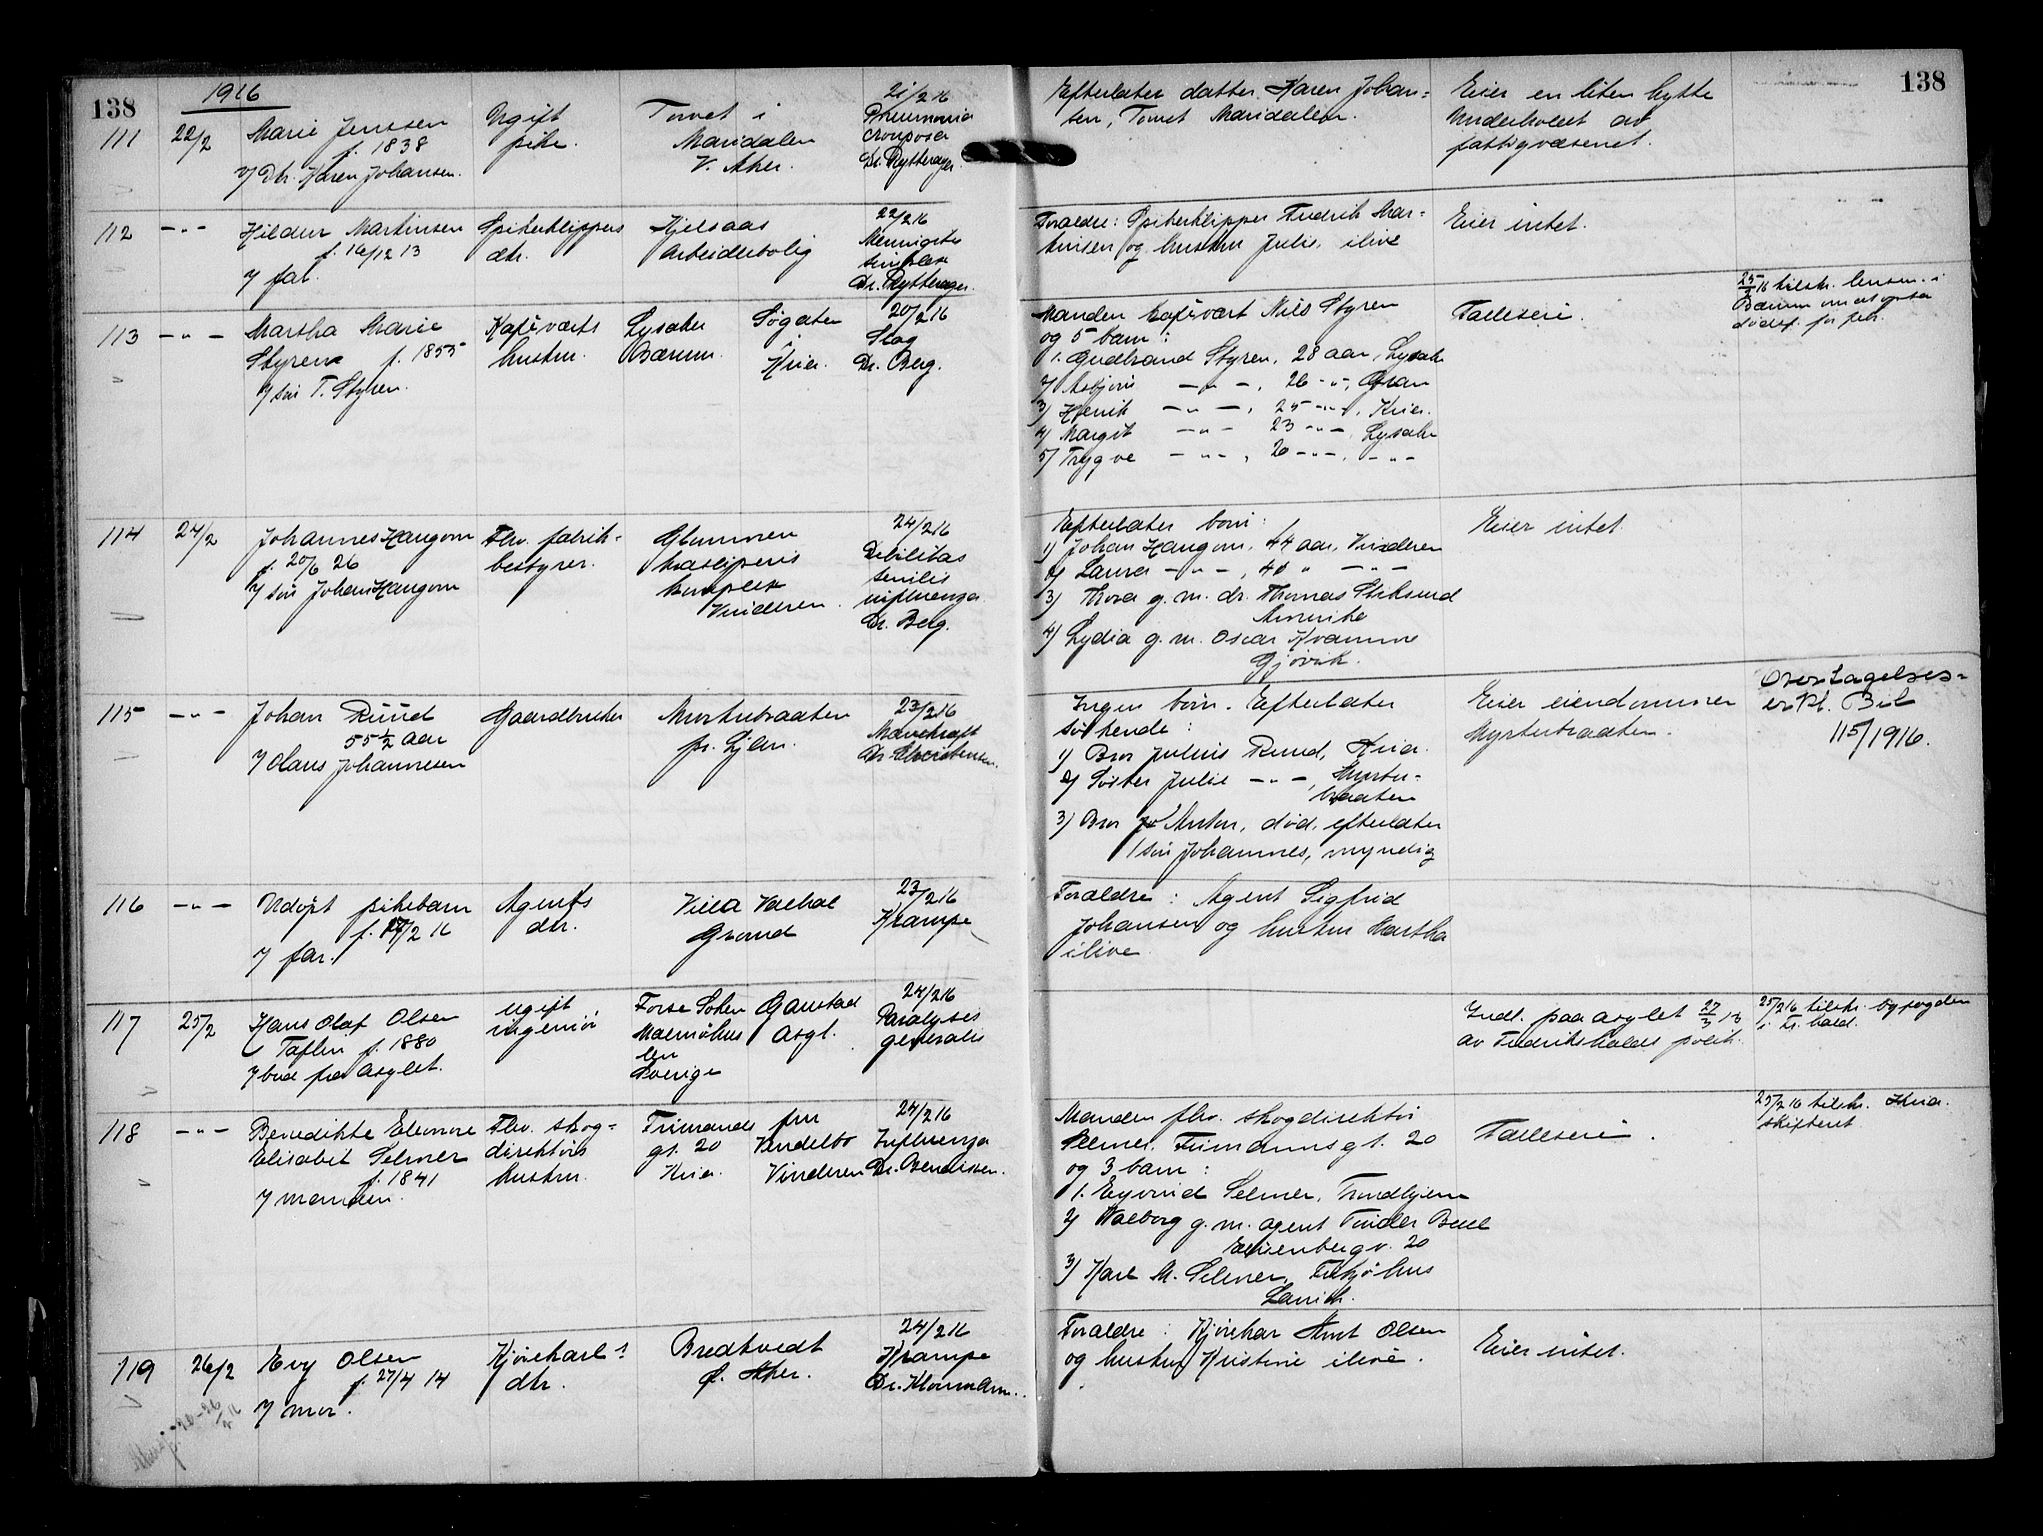 138
1916
138
111
22/2
Marie Jenssen
f. 1838
v/ Dtr. Karen Johansen.
Ugift
pike.
Tomet i
Maridalen
V. Aker.
21/2 16
Pneumonia
crouposa
Dr. Rytterager.
Efterlater datter Karen Johan=
sen, Tomet Maridalen.
Eier en liten hytte
Underholdt av
fattigvæsenet.
112
-"-
Hildur Martinsen
f. 16/12 13
v/ far.
Spikerklippers
dtr.
Kjelsaas
Arbeiderbolig
22/2 16
Meningitis
simplex
Dr. Rytterager.
Foraldre: Spikerklipper Fredrik Mar=
tinsen og hustru Julie, ilive
Eier intet.
113
-"-
Martha Marie
Styren f. 1855
v/ søn T. Styren.
Kaféværts
hustru.
Lysaker
Bærum.
Søgaten
Kria.
20/2 16
Slag
Dr. Berg.
Manden kafévært Nils Styren
og 5 barn:
1. Gudbrand Styren, 28 aar, Lysaker
2/ Asbjørn -"-, 26 -"-, Gran
3/ Henrik -"-, 25 -"-, Kria.
4/ Margit -"- 23 -"-, Lysaker
5/ Trygve -"-, 20 -"-, -"-
Fælleseie.
25/2 16 tilskr. lensm. i
Bærum
dødsf.
114
24/2
Johannes Haugom
f. 20/6 26
v/ søn Johan Haugom
Fhv. fabrik=
bestyrer.
Glommen
træsliperis
kompleks
Vinderen.
24/2 16
Debilitas
senilis
influenza
Dr. Berg.
Efterlater børn:
1) Johan Haugom, 44 aar, Vinderen
2/ Laura -"-, 40 " -"-
3) Thora g. m. dr. Thomas Stiksrud
Amerika
4) Lydia g. m. Oscar Kvamme
Gjøvik.
Eier intet.
115
-"-
Johan Ruud
55½ aar
v/ Olaus Johannesen
Gaardbruker
Myrterbraaten
pr. Ljan.
23/2 16
Mavekræft
Dr. Christensen.
Ingen børn. Efterlater
søskende:
1) Bror Julius Ruud, Kria.
2/ Søster Julie -"-, Myrter=
braaten
3) Bror Anton, død, efterlater
1 søn Johannes, myndig
Eier eiendommen
Myrterbraaten.
Overtagelses=
erkl. Bil
115/1916.
116
-"-
Udøpt pikebarn
f. 17/2 16
v/ far.
Agents
dtr.
Villa Valhal
Grorud
23/2 16
Krampe
Foraldre: Agent Sigfrid
Johansen og hustru Martha
ilive
117
25/2
Hans Olaf Olsen
Taflin f. 1880
v/ bud fra asylet.
ugift
ingeniør
Malmøhus
len
Sverige
Gaustad
Asyl.
24/2 16
Paralysis
generalis
Indl. paa asylet 27/3 13
av Fredrikshalds politi.
25/2 16 tilskr. byfogden
i Fr. hald.
118
-"-
Benedikte Eleonore
Elisabet Selmer
f. 1841
v/ manden.
Fhv. skog=
direktørs
hustru.
gt. 20
Kria.
fru
Bendelbo
Vinderen
24/2 16
Influenza
Dr. Bendixen.
Manden fhv. skogdirektør
Selmer, gt. 20
og 3 barn:
1. Eyvind Selmer, Trondhjem
2/ Valborg g. m. agent Buell
20
3) Karl M. Selmer,
Larvik.
Fælleseie.
25/2 16 tilskr. Kria.
skifteret
119
26/2
Evy Olsen
f. 27/4 14
v/ mor.
Kjørekarls
dtr.
Bredtvedt
Ø. Aker.
24/2 16
Krampe
Foraldre: Kjørekar Olsen
og hustru Kristine ilive.
Eier intet.